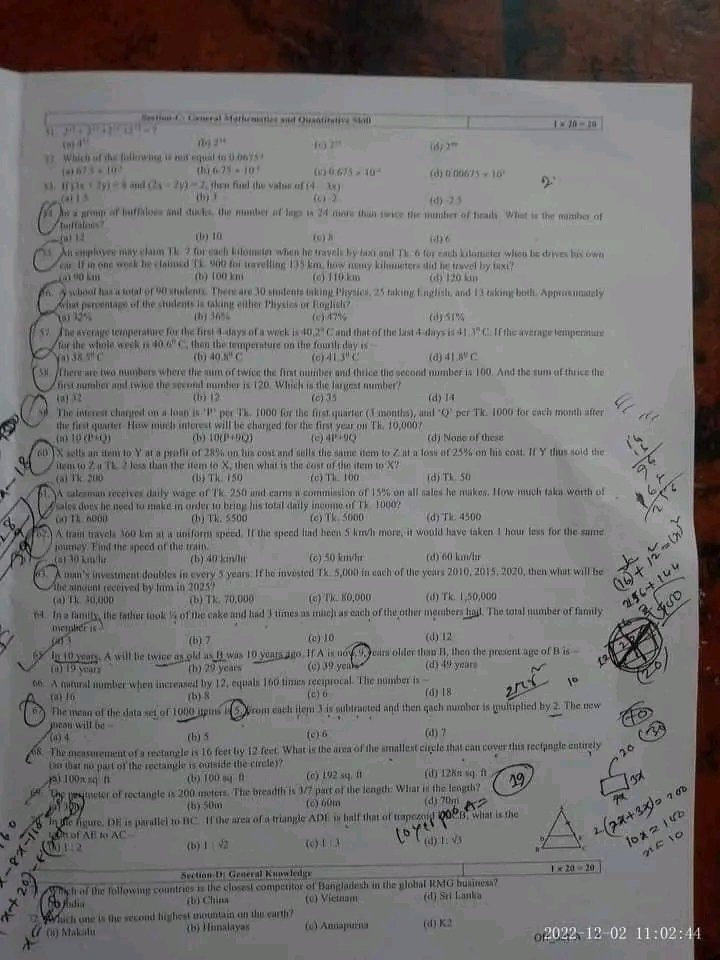 Section-C: General Mathematics and Quantitative Skill 1 x 20 = 20
52. Which of the following is not equal to 0.0675?
53. If (3x + 2y) = 8 and (2x - 2y) = 2, then find the value of (4 - 3x)
(a) 1.5 (b) 3 (c) -2 (d) -2.5
54. In a group of buffaloes and ducks, the number of legs is 24 more than twice the number of heads. What is the number of
buffaloes?
(a) 12 (b) 10 (c) 8 (d) 6
55. An employee may claim Tk. 7 for each kilometer when he travels by taxi and Tk. 6 for each kilometer when he drives his own
car. If in one week he claimed Tk. 900 for travelling 135 km, how many kilometers did he travel by taxi?
(a) 90 km (b) 100 km (c) 110 km (d) 120 km
56. A school has a total of 90 students. There are 30 students taking Physics, 25 taking English, and 13 taking both. Approximately
what percentage of the students is taking either Physics or English?
(a) 32% (b) 36% (c) 47% (d) 51%
57. The average temperature for the first 4-days of a week is 40.2⁰ C and that of the last 4-days is 41.3⁰ C. If the average temperature
for the whole week is 40.6⁰ C, then the temperature on the fourth day is –
(a) 38.5⁰ C (b) 40.8⁰ C (c) 41.3⁰ C (d) 41.8⁰ C
58. There are two numbers where the sum of twice the first number and thrice the second number is 100. And the sum of thrice the
first number and twice the second number is 120. Which is the largest number?
(a) 32 (b) 12 (c) 35 (d) 14
59. The interest charged on a loan is 'P' per Tk. 1000 for the first quarter (3 months), and 'Q' per Tk. 1000 for each month after
the first quarter. How much interest will be charged for the first year on Tk. 10,000?
(a) 10 (P+Q) (b) 10(P+9Q) (c) 4P+9Q (d) None of these
60. X sells an item to Y at a profit of 28% on his cost and sells the same item to Z at a loss of 25% on his cost. If Y thus sold the
item to Z a Tk. 2 less than the item to X, then what is the cost of the item to X?
(a) Tk. 200 (b) Tk. 150 (c) Tk. 100 (d) Tk. 50
61. A salesman receives daily wage of Tk. 250 and earns a commission of 15% on all sales he makes. How much taka worth of
sales does he need to make in order to bring his total daily income of Tk. 1000?
(a) Tk. 6000 (b) Tk. 5500 (c) Tk. 5000 (d) Tk. 4500
62. A train travels 360 km at a uniform speed. If the speed had been 5 km/h more, it would have taken 1 hour less for the same
journey. Find the speed of the train.
(a) 30 km/hr (b) 40 km/hr (c) 50 km/hr (d) 60 km/hr
63. A man's investment doubles in every 5 years. If he invested Tk. 5,000 in each of the years 2010, 2015, 2020, then what will be
the amount received by him in 2025?
(a) Tk. 30,000 (b) Tk. 70,000 (c) Tk. 80,000 (d) Tk. 1,50,000
64. In a family, the father took ¼ of the cake and had 3 times as much as each of the other members had. The total number of family
member is –
(a) 3 (b) 7 (c) 10 (d) 12
65. In 10 years, A will be twice as old as B was 10 years ago. If A is now 9 years older than B, then the present age of B is –
(a) 19 years (b) 29 years (c) 39 years (d) 49 years
66. A natural number when increased by 12, equals 160 times reciprocal. The number is –
(a) 16 (b) 8 (c) 6 (d) 18
67. The mean of the data set of 1000 items is 5. From each item 3 is subtracted and then each number is multiplied by 2. The new
mean will be –
(a) 4 (b) 5 (c) 6 (d) 7
68. The measurement of a rectangle is 16 feet by 12 feet. What is the area of the smallest circle that can cover this rectangle entirely
(so that no part of the rectangle is outside the circle)?
(a) 100π sq. ft (b) 100 sq. ft (c) 192 sq. ft (d) 128π sq. ft
69. The perimeter of rectangle is 200 meters. The breadth is 3/7 part of the length. What is the length?
(b) 50m (c) 60m (d) 70m
In the figure, DE is parallel to BC. If the area of a triangle ADE is half that of trapezoid what is the
of AE to AC –
(a) 1 : 2 (b) 1 : √2 (c) 1 : 3 (d) 1: √3
Section-D: General Knowledge 1 x 20 = 20
Which of the following countries is the closest competitor of Bangladesh in the global RMG business?
(a) India (b) China (c) Vietnam (d) Sri Lanka
72. Which one is the second highest mountain on the earth?
(a) Makalu (b) Himalayas (c) Annapurna (d) K2
2πr²
19
2(7x+3x)=200
2022-12-02 11:02:44